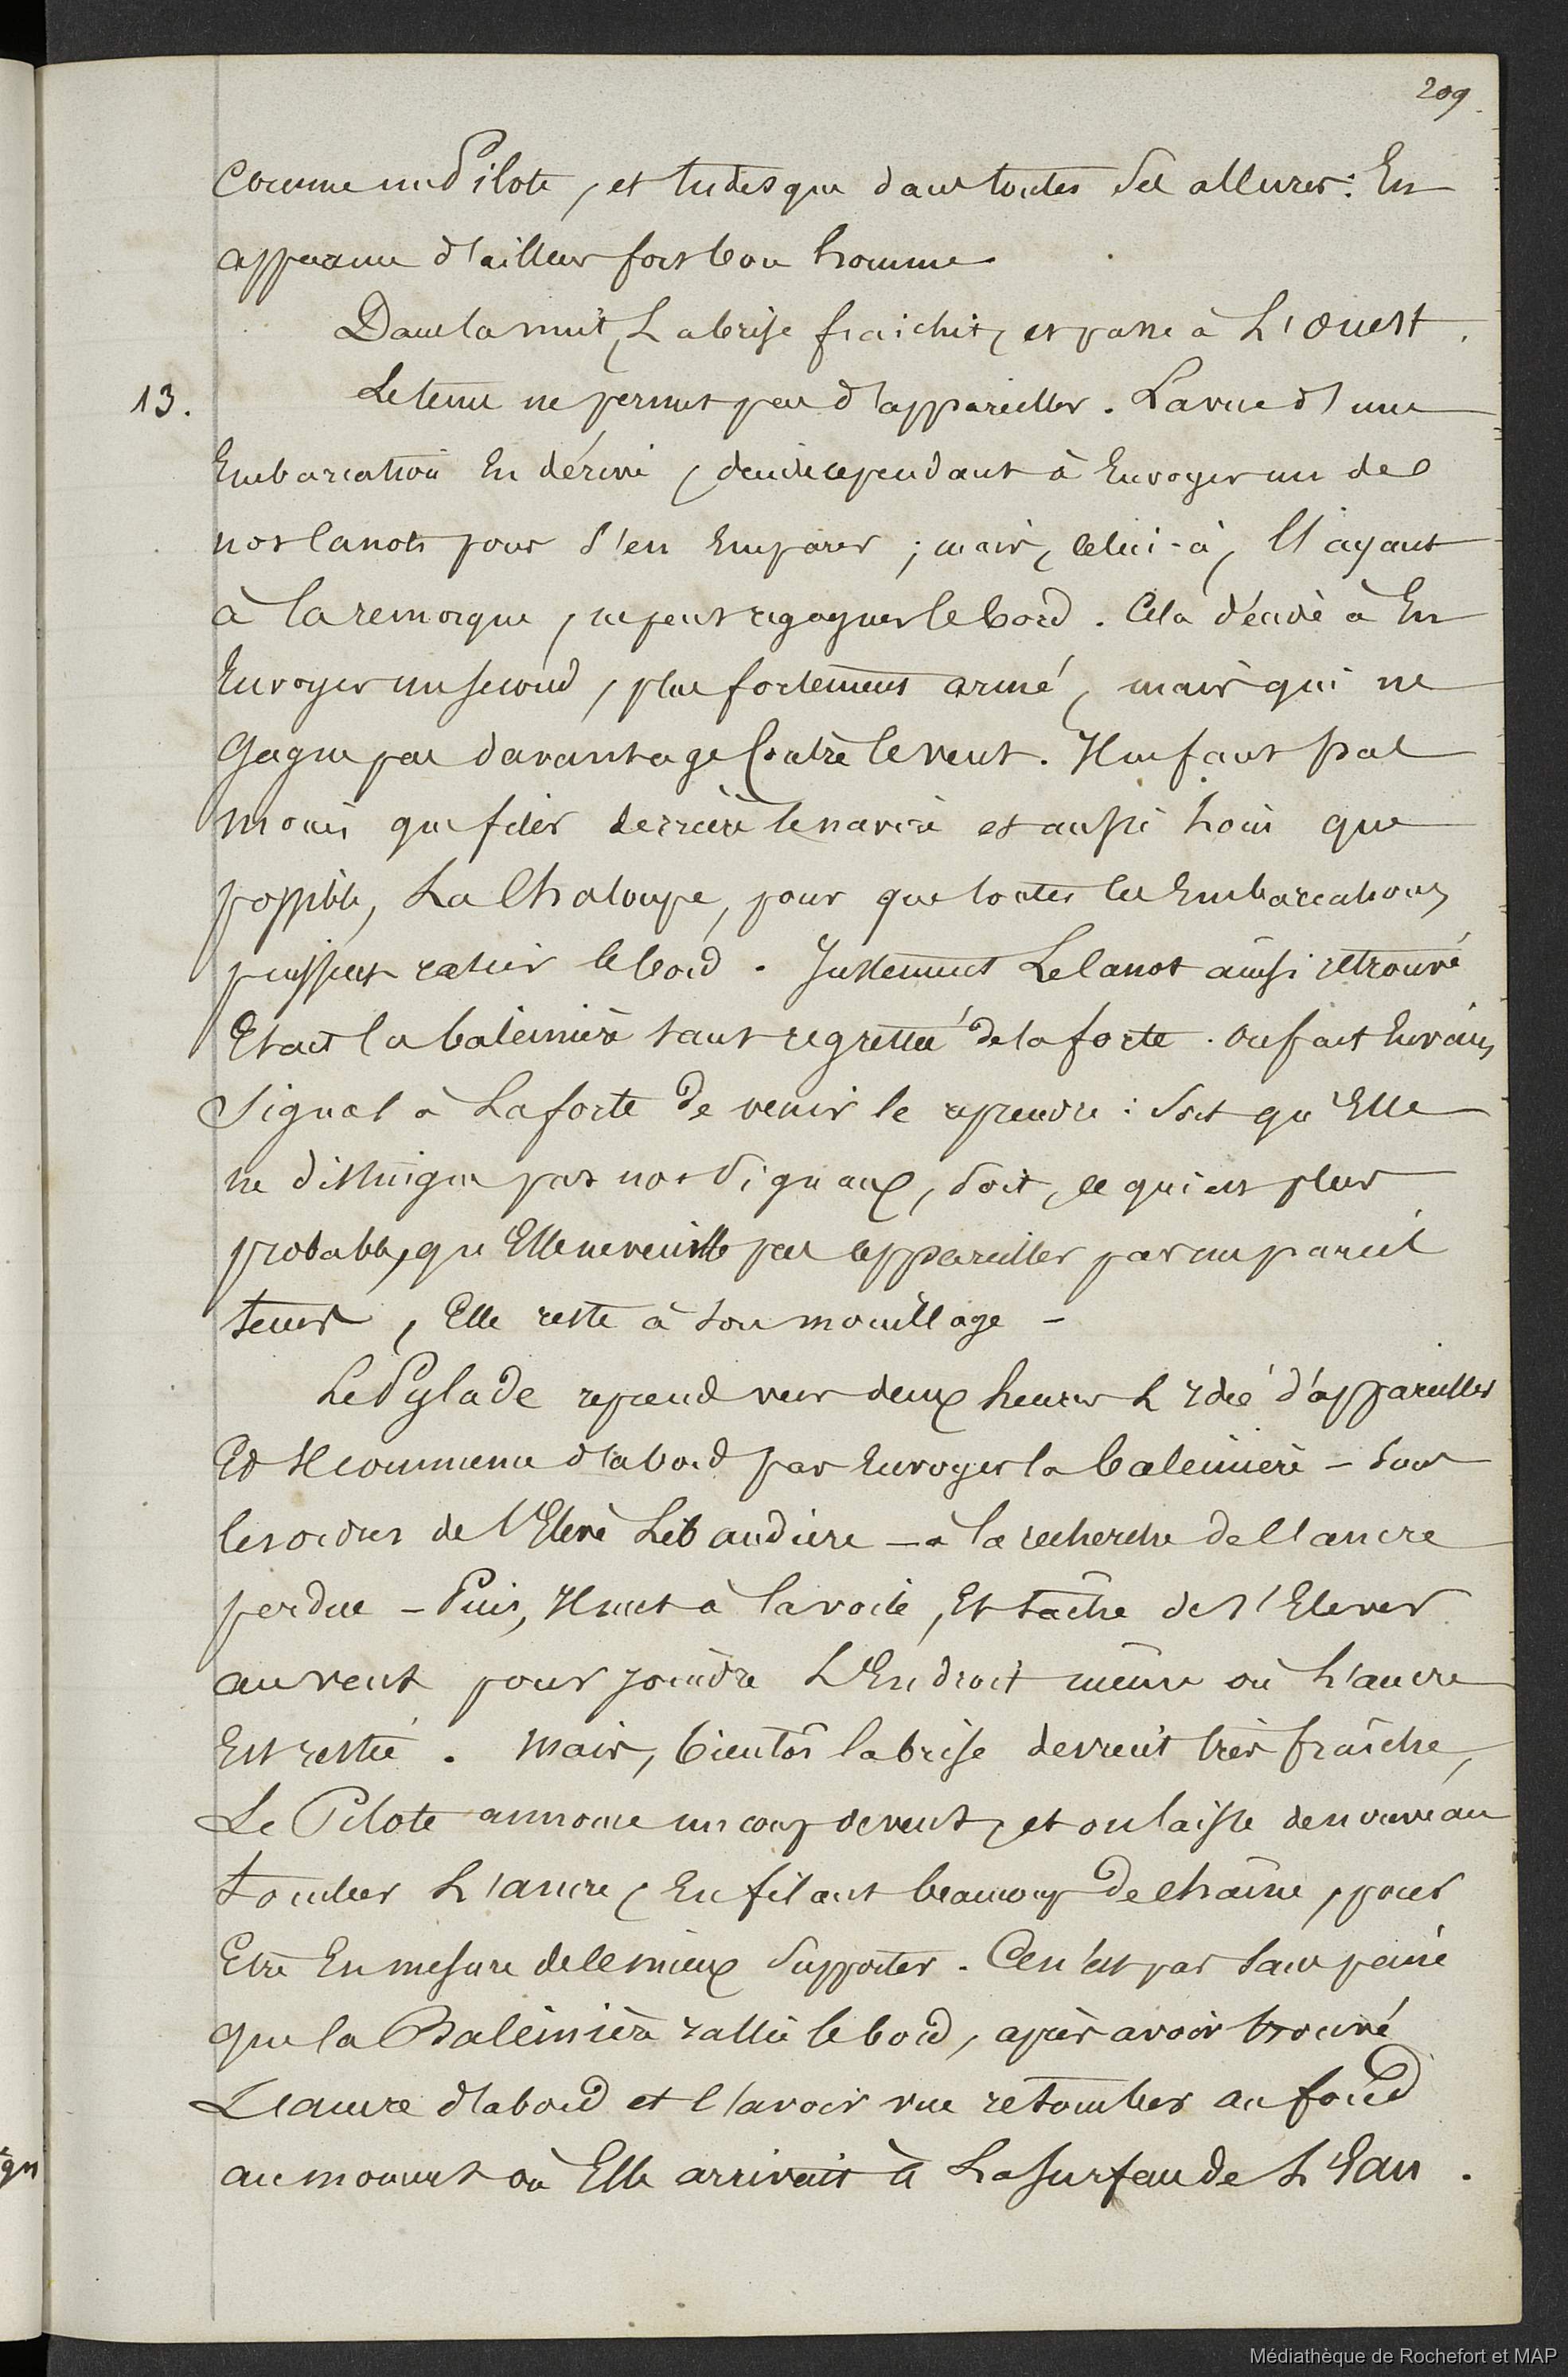 209.
Comme un Pilote, et tudesque dans toutes ses allures : En
apparence d'ailleurs fort bon homme.
Dans la nuit, La brise fraichit, et passe à L'Ouest.
13. Le tems ne permet pas d'appareiller. La vue d'une
Embarcation En dérive, décide cependant à Envoyer un de
nos Canots pour s'en Emparer ; mais, celui-ci, l'ayant
à la remorque, ne peut regagner le bord. Cela décide à En
Envoyer un second, plus fortement armé, mais qui ne
Gagne pas davantage Contre le vent. Il ne faut pas
moins que filer derrière le navire et aussi Loin que
possible, La Chaloupe, pour que toutes les Embarcations
puissent rallier le bord. Justement Le Canot ainsi retrouvé
Etait la baleinière tant regrettée de la forte. On fait Envain
Signal à La forte de venir le reprendre : Soit qu'Elle
ne distingue pas nos Signaux, Soit, ce qui est plus
probable, qu'Elle ne veuille pas appareiller par un pareil
tems, Elle reste à son mouillage -
Le Pylade reprend vers deux heures L'Idée d'appareiller
Et Il commence d'abord par Envoyer la baleinière - Sous
les ordres de l'Elève Lebaudière - à la recherche de l'ancre
perdue - Puis, Il met à la voile, Et tâche de s'Elever
au vent pour joindre L'Endroit même où L'ancre
Est restée. Mais, bientôt la brise devient très fraîche,
Le Pilote annonce un coup de vent, et on laisse de nouveau
tomber L'ancre, En filant beaucoup de chaîne, pour
Etre En mesure de le mieux Supporter. Ce n'est pas sans peine
que la Baleinière rallie le bord, après avoir trouvé
L'ancre d'abord et l'avoir vue retomber au fond
au moment où Elle arrivait à La surface de L'Eau.
Médiathèque de Rochefort et MAP